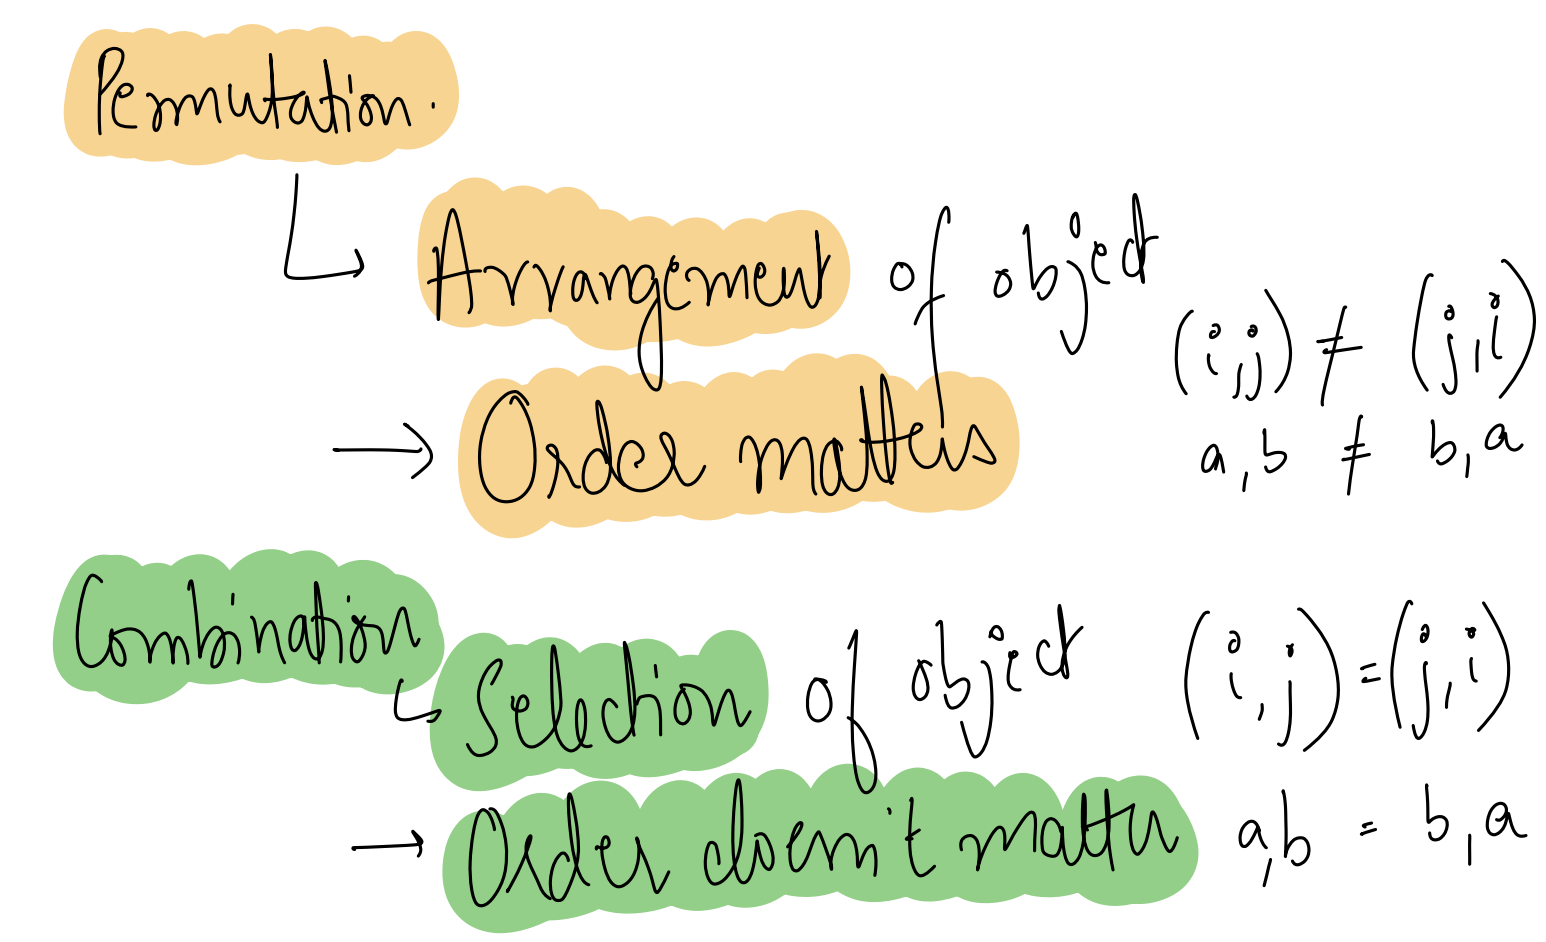 Permutation.
Arrangement of object
(i,j) ≠ (j,i)
→ Order matters
a,b ≠ b,a
Combination
Selection of object (i,j) = (j,i)
→ Order doesn't matter a,b = b,a